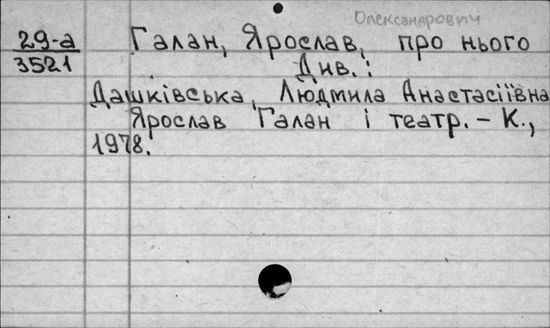 Олександрович
29-а Галан, Ярослав, про нього
3521 Див.:
Дашківська, Людмила Анастасіївна
Ярослав Галан і театр. – К.,
1978.